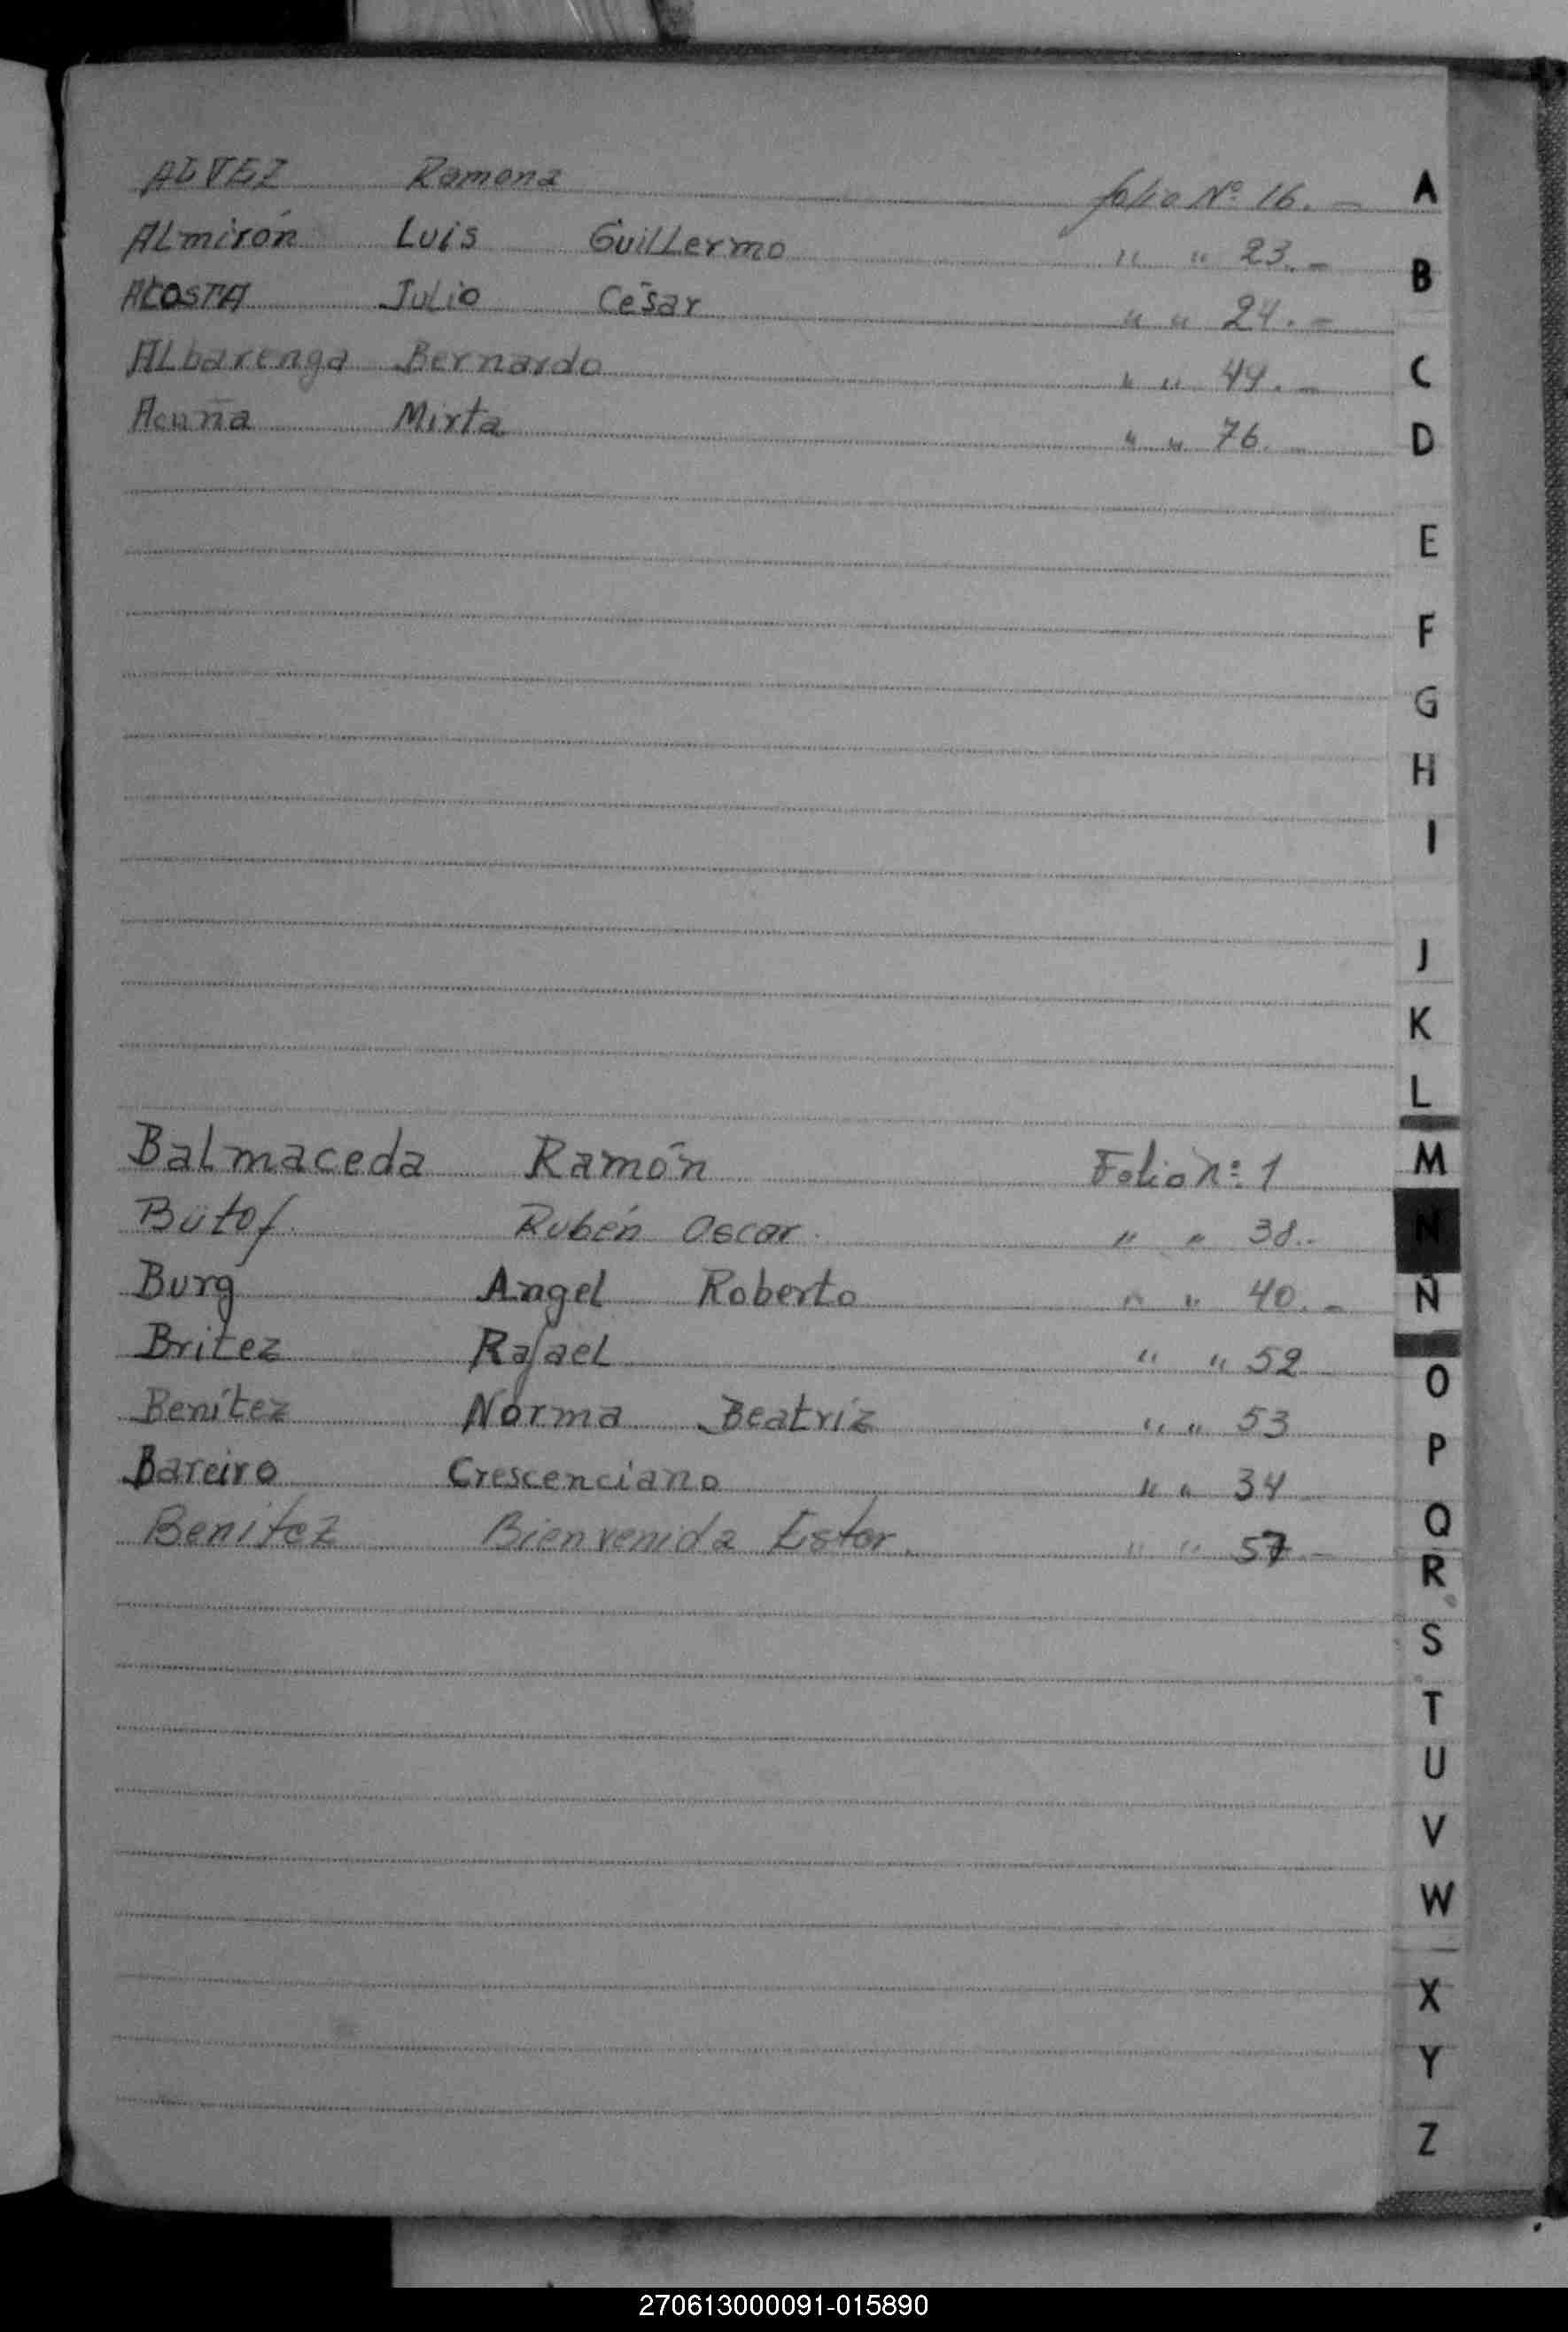 ALVEZ Ramona folio Nº 16. -
ALmirón Luis GuiLLermo " " 23. -
ACOSTA Julio César " " 24. -
ALbarenga Bernardo " " 49. -
Acuña Mirta " " 76. -
BaLmaceda Ramón Folio nº 1
Bütof. Rubén Oscar. " " 38. -
Burg AngeL Roberto " " 40. -
Britez RafaeL " " 52
Benítez Norma Beatríz " " 53
Bareiro Crescenciano " " 34
Benitez Bienvenida Ester. " " 57. -
A
B
C
D
E
F
G
H
I
J
K
L
M
N
Ñ
O
P
Q
R
S
T
U
V
W
X
Y
Z
270613000091-015890